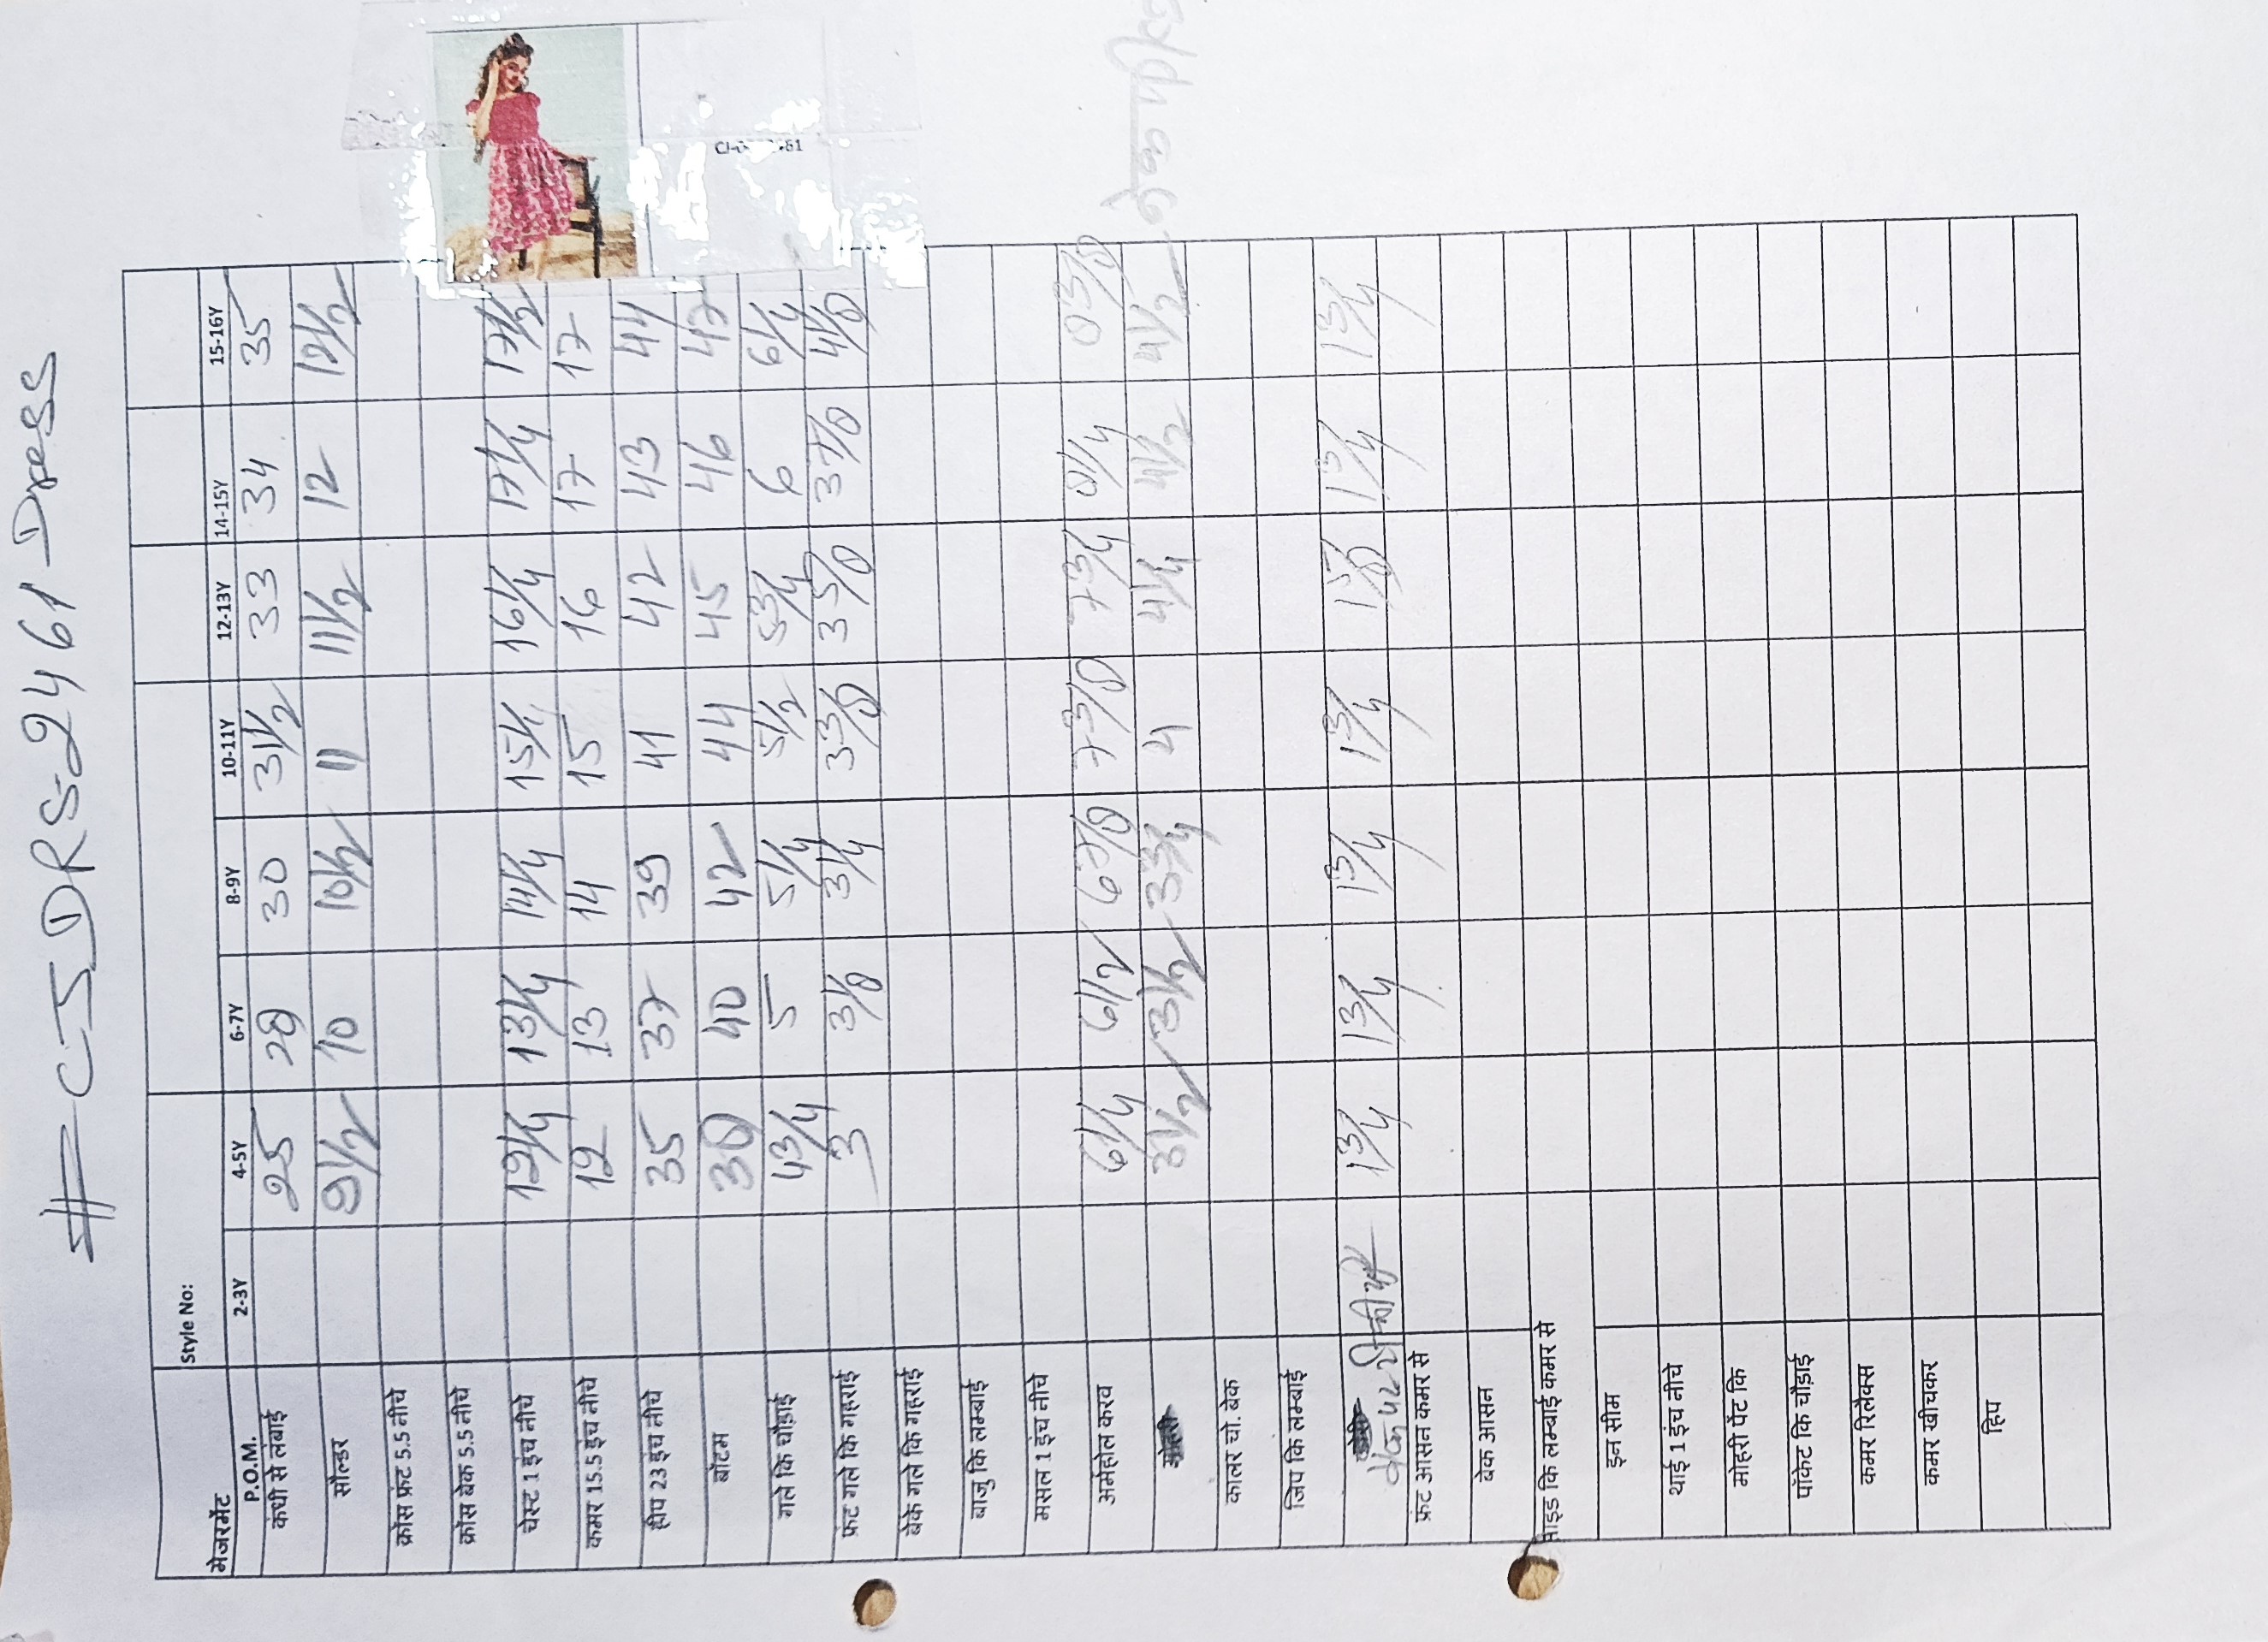 # CJDRS-2461 Dress
CJ-
Style No:
मेजरमेंट
P.O.M. 2-3Y 4-5Y 6-7Y 8-9Y 10-11Y 12-13Y 14-15Y 15-16Y
कंधी से लंबाई 25 28 30 31 1/2 33 34 35
सौल्डर 9 1/2 10 10 1/2 11 11 1/2 12 12 1/2
क्रॉस फ्रंट 5.5 नीचे
क्रॉस बेक 5.5 नीचे
चेस्ट 1 इंच नीचे 12 1/4 13 1/4 14 1/4 15 1/4 16 1/4 17 1/4 17 1/2
कमर 15.5 इंच नीचे 12 13 14 15 16 17 17
हीप 23 इंच नीचे 35 37 39 41 42 43 44
बॉटम 38 40 42 44 45 46 47
गले कि चौड़ाई 4 3/4 5 5 1/4 5 1/2 5 3/4 6 6 1/4
फ्रंट गले कि गहराई 3 3 1/8 3 1/4 3 3/8 3 5/8 3 7/8 4 1/8
बेके गले कि गहराई
बाजु कि लम्बाई
मसल 1 इंच नीचे
अर्महोल करव 6 1/4 6 1/2 6 7/8 7 3/8 7 3/4 8 1/4 8 3/8
3 1/2 3 1/2 3 3/4 4 4 1/4 4 1/2 4 1/2
कालर चौ. बेक
जिप कि लम्बाई
1 3/4 1 3/4 1 3/4 1 3/4 1 3/4 1 3/4
फ्रंट आसन कमर से
बेक आसन
साइड कि लम्बाई कमर से
इन सीम
थाई 1 इंच नीचे
मोहरी पेंट कि
पॉकेट कि चौड़ाई
कमर रिलैक्स
कमर खीचकर
हिप